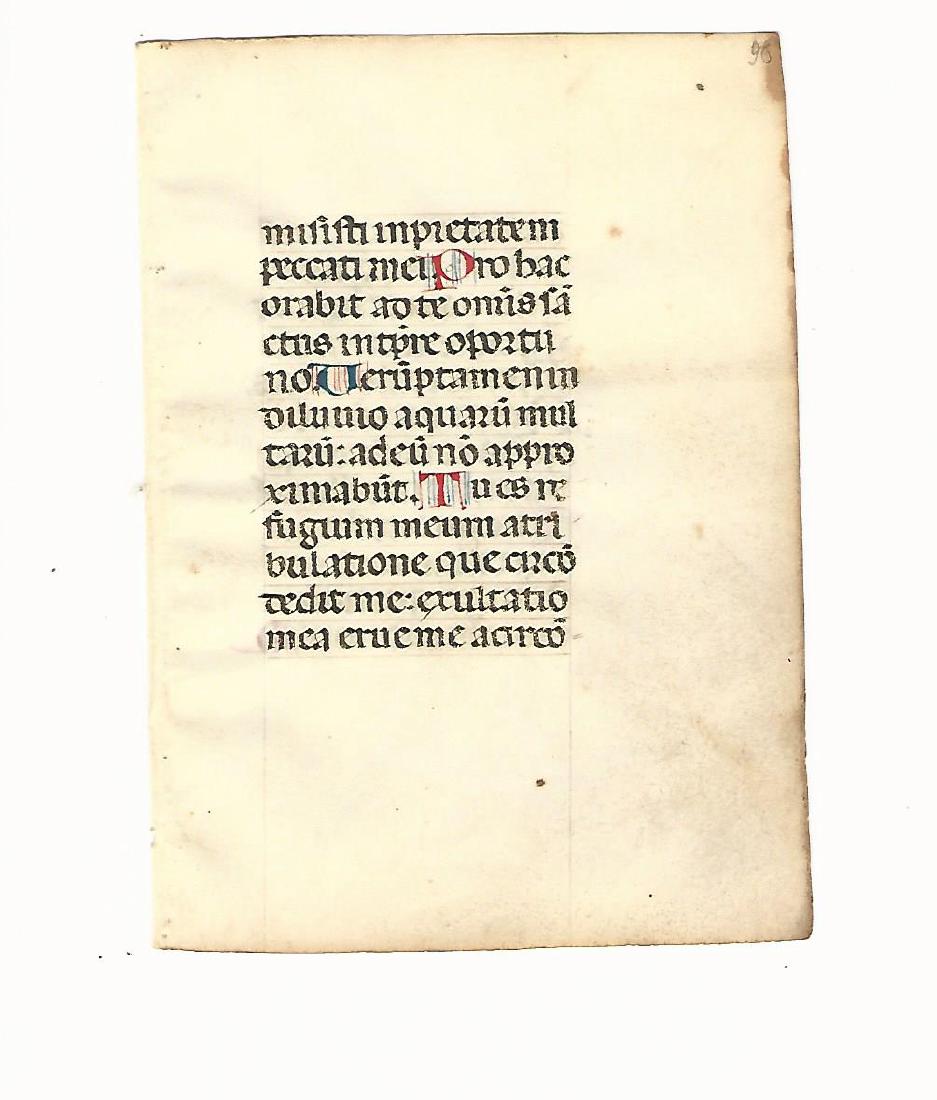 96
misisti inpietatem
peccati mei. Pro hac
orabit ad te omīs sā
ctus in tp̄re oportu
no Uerūptamen in
diluuio aquarū mul
tarū: ad eū nō appro
ximabūt. Tu es re
fugium meum a tri
bulatione que circū
dedit me: exultatio
mea erue me a circū